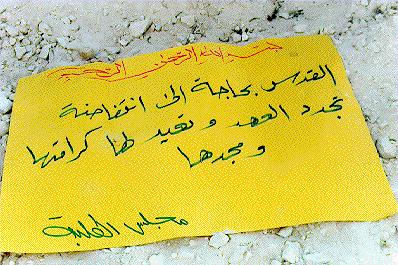 بسم الله الرحمن الرحيم
القدس بحاجة الى انتفاضة
تجدد العهد وتعيد لها كرامتها
ومجدها
مجلس الطلبة